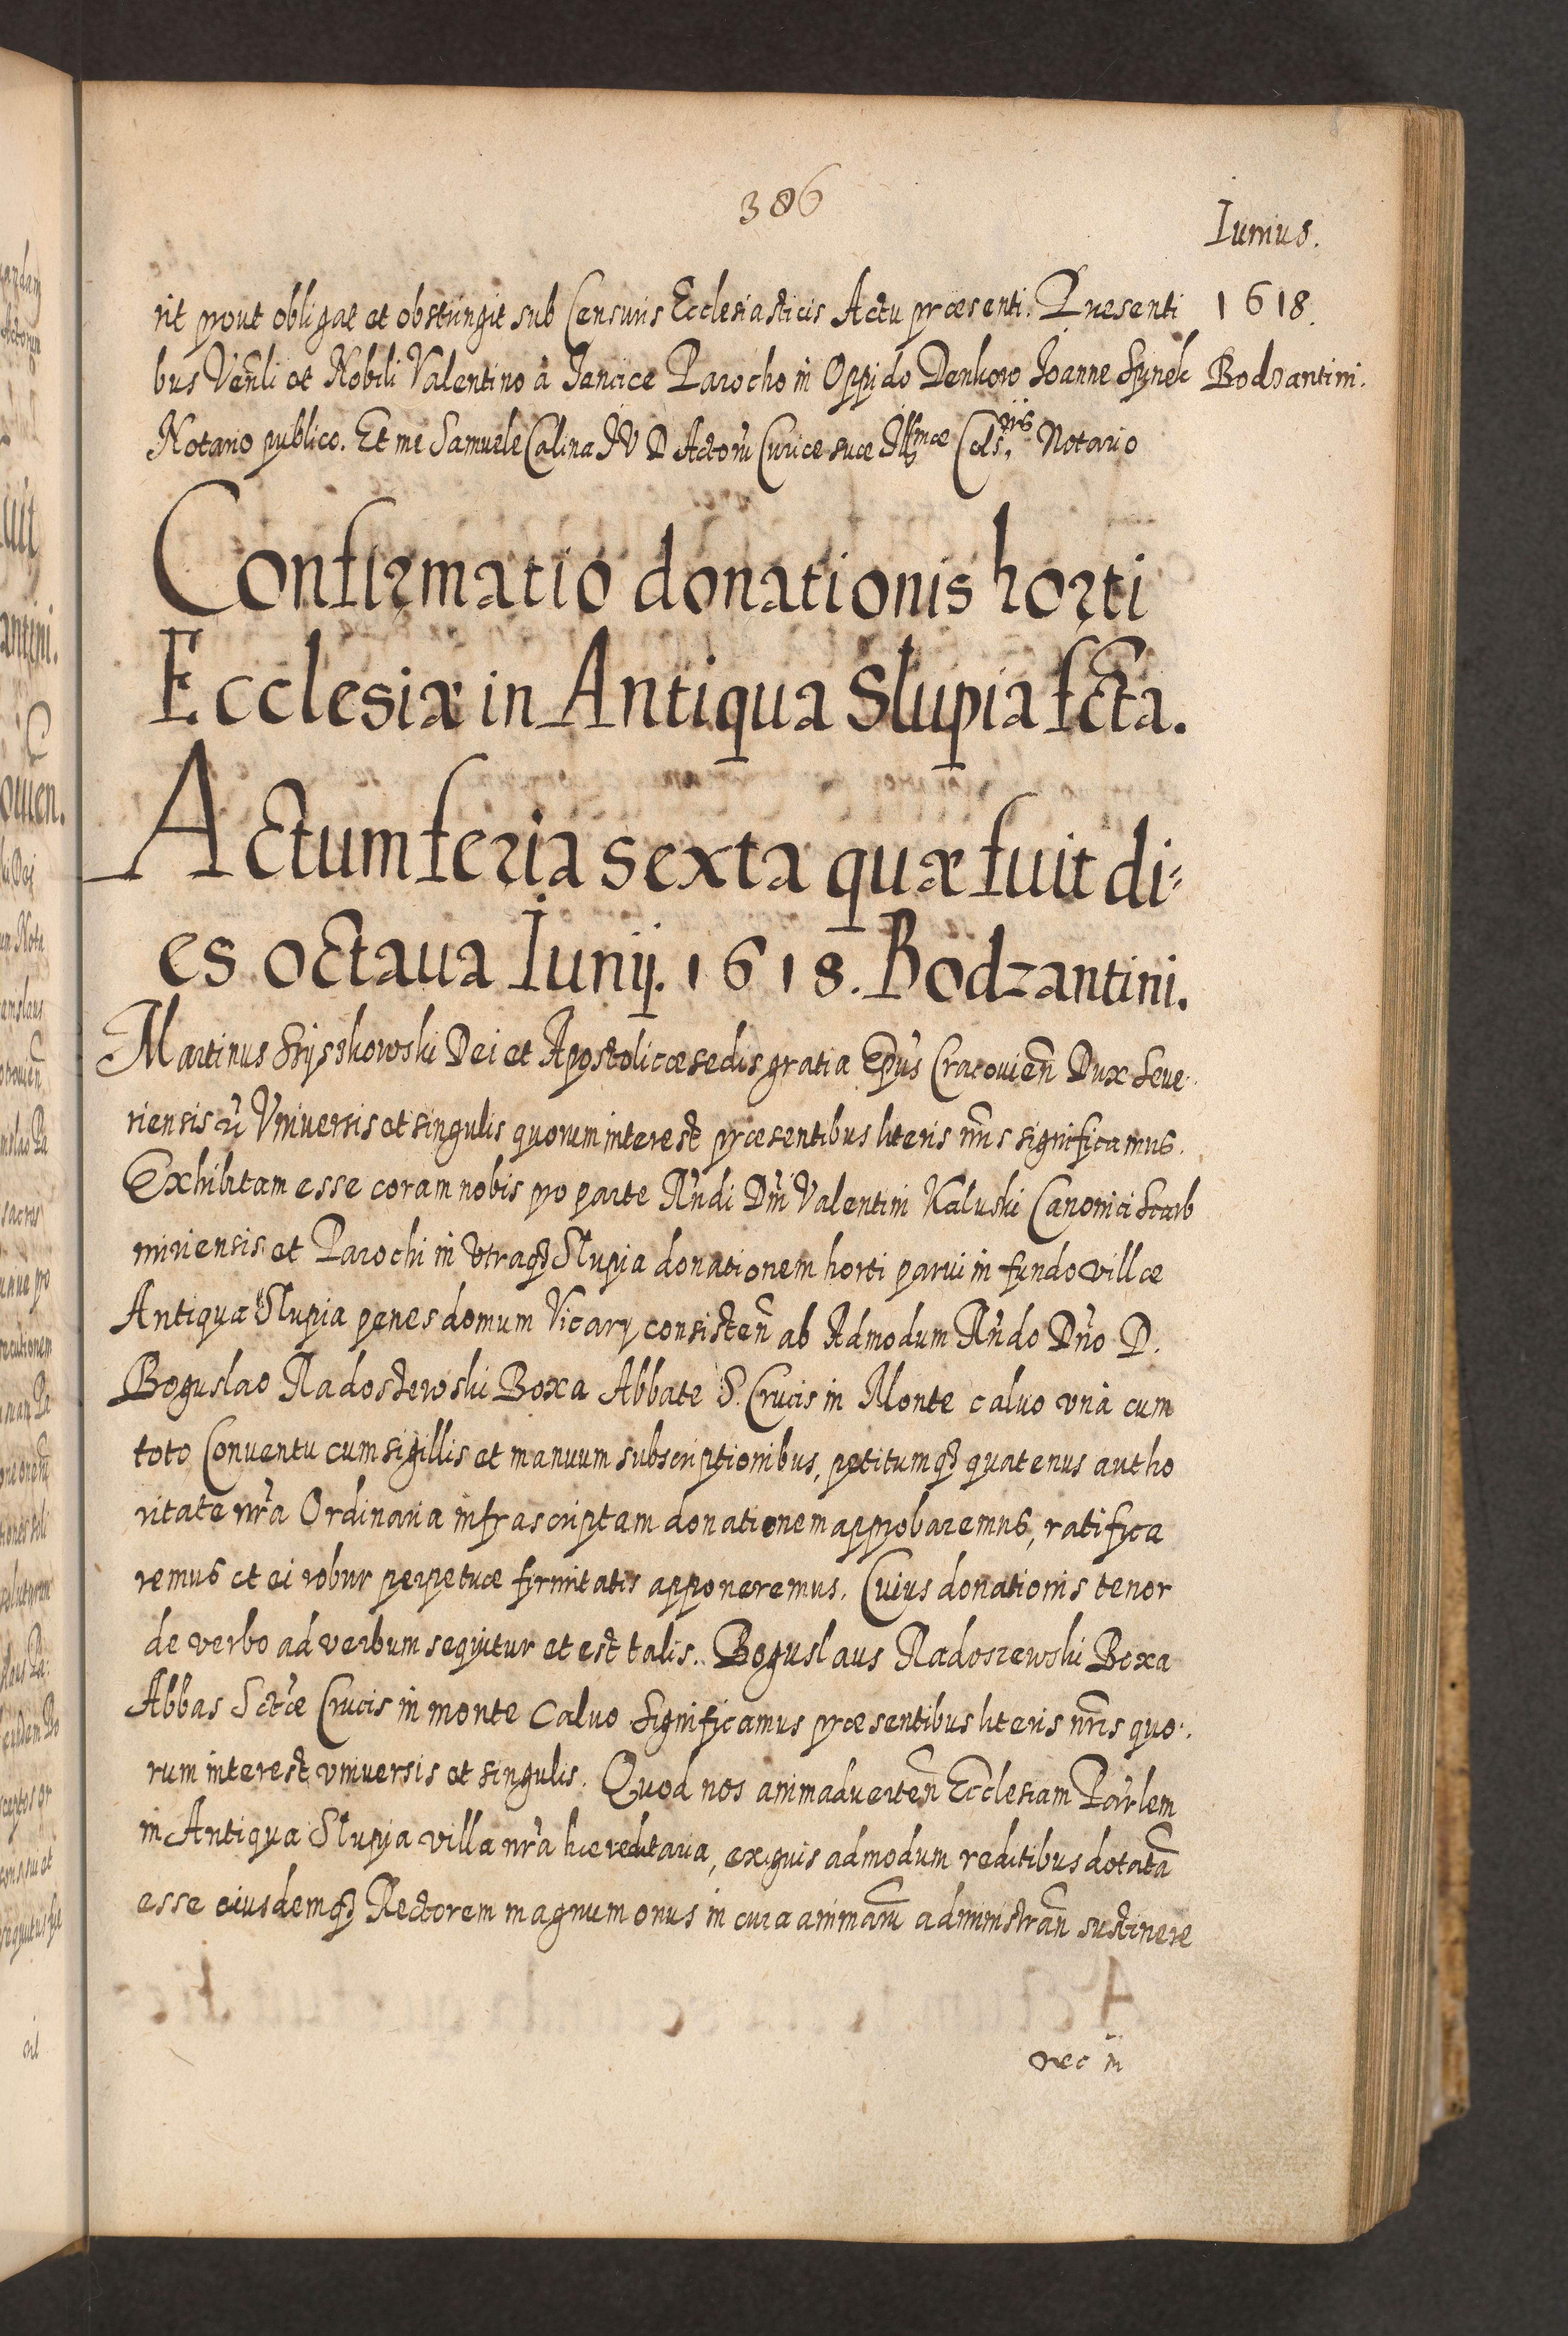 386
Iunius.
rit prout obligat et obstringit sub Censuris Ecclesiasticis Actu præsenti. Præsenti
1618.
bus Venli et Nobili Valentino à Janice Parocho in Oppido Denkow Joanne Synek
Bodzantini.
Notario publico. Et me Samuele Calina JVD Actorũ Curiæ suæ Illmæ Cels.nis Notario
Confirmatio donationis horti
Ecclesiæ in Antiqua Slupia fcta.
Actum feria sexta quæ fuit di-
es octaua Iunij. 1618. Bodzantini.
Martinus Szyszkowski Dei et Apostolicæ sedis gratia Epũs Cracouien Dux Seue
riensis Vniuersis et singulis quorum interest præsentibus literis nris significamus.
Exhibitam esse coram nobis pro parte Rndi Dni Valentini Kaluski Canonici Scarb
miriensis et Parochi in vtraq3 Slupia donationem horti parui in fundo villæ
Antiqua Slupia penes domum Vicarij consisten ab Admodum Rndo Dno D.
Boguslao Radostewski Boxa Abbate S. Crucis in Monte caluo vnà cum
toto Conuentu cum sigillis et manuum subscriptionibus, petitumq3 quatenus autho
ritate nra Ordinaria infrascriptam donationem approbaremus, ratifica
remus et ei robur perpetuæ firmitatis apponeremus. Cuius donationis tenor
de verbo ad verbum sequitur et est talis. Boguslaus Radoszewski Boxa
Abbas Sctæ Crucis in monte Caluo Significamus præsentibus literis nris quo.
rum interest vniuersis et singulis. Quod nos animaduerten Ecclesiam Parlem
in Antiqua Slupia villa nra hæreditaria, exiguis admodum reditibus dotatã
esse eiusdemq3 Rectorem magnum onus in cura animarũ administran sustinere
nec in